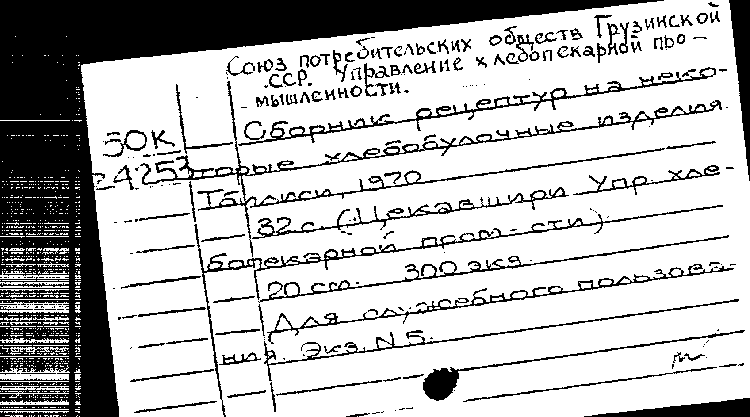 Союз потребительских обществ Грузинской
ССР. Управление хлебопекарной про-
мышленности.
50К
24253
Сборник рецептур на неко-
торые хлебобулочные изделия.
Тбилиси, 1970
32 с. (Цекавшири Упр. хле-
бопекарной пром-сти)
20 см. 300 экз.
Для служебного пользова-
ния. Экз. N 5.